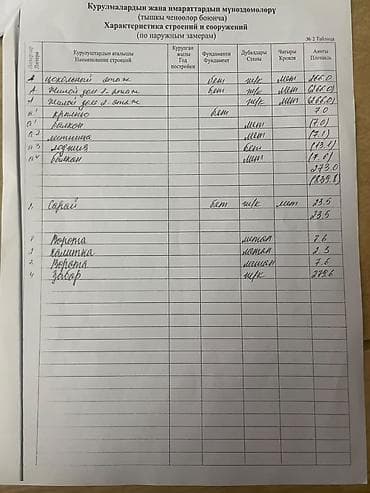 Курулмалардын жана имараттардын мүнөздөмөлөрү
(тышкы ченөөлөр боюнча)
Характеристика строений и сооружений
(по наружным замерам)
№ 2 Таблица
Курулуштардын аталышы Наименование строений Курулган жылы Год постройки Фундаменти Фундамент Дубалдары Стены Чатыры Кровля Аянты Площадь
А цокольный этаж бет ш/к мет 266.0
А Жилой дом 1-этаж бет ш/к мет (266.0)
А Жилой дом 2-этаж ш/к мет (266.0)
а¹ крыльцо бет 7.0
балкон мет (7.0)
а² лестница мет (7.1)
а³ лоджия бет
а⁴ балкон мет
273.0
Сарай бет ш/к мет 23.5
23.5
1 Ворота метал 7.6
2 Калитка метал 2.3
3 Ворота метал 7.6
4 Забор ш/к